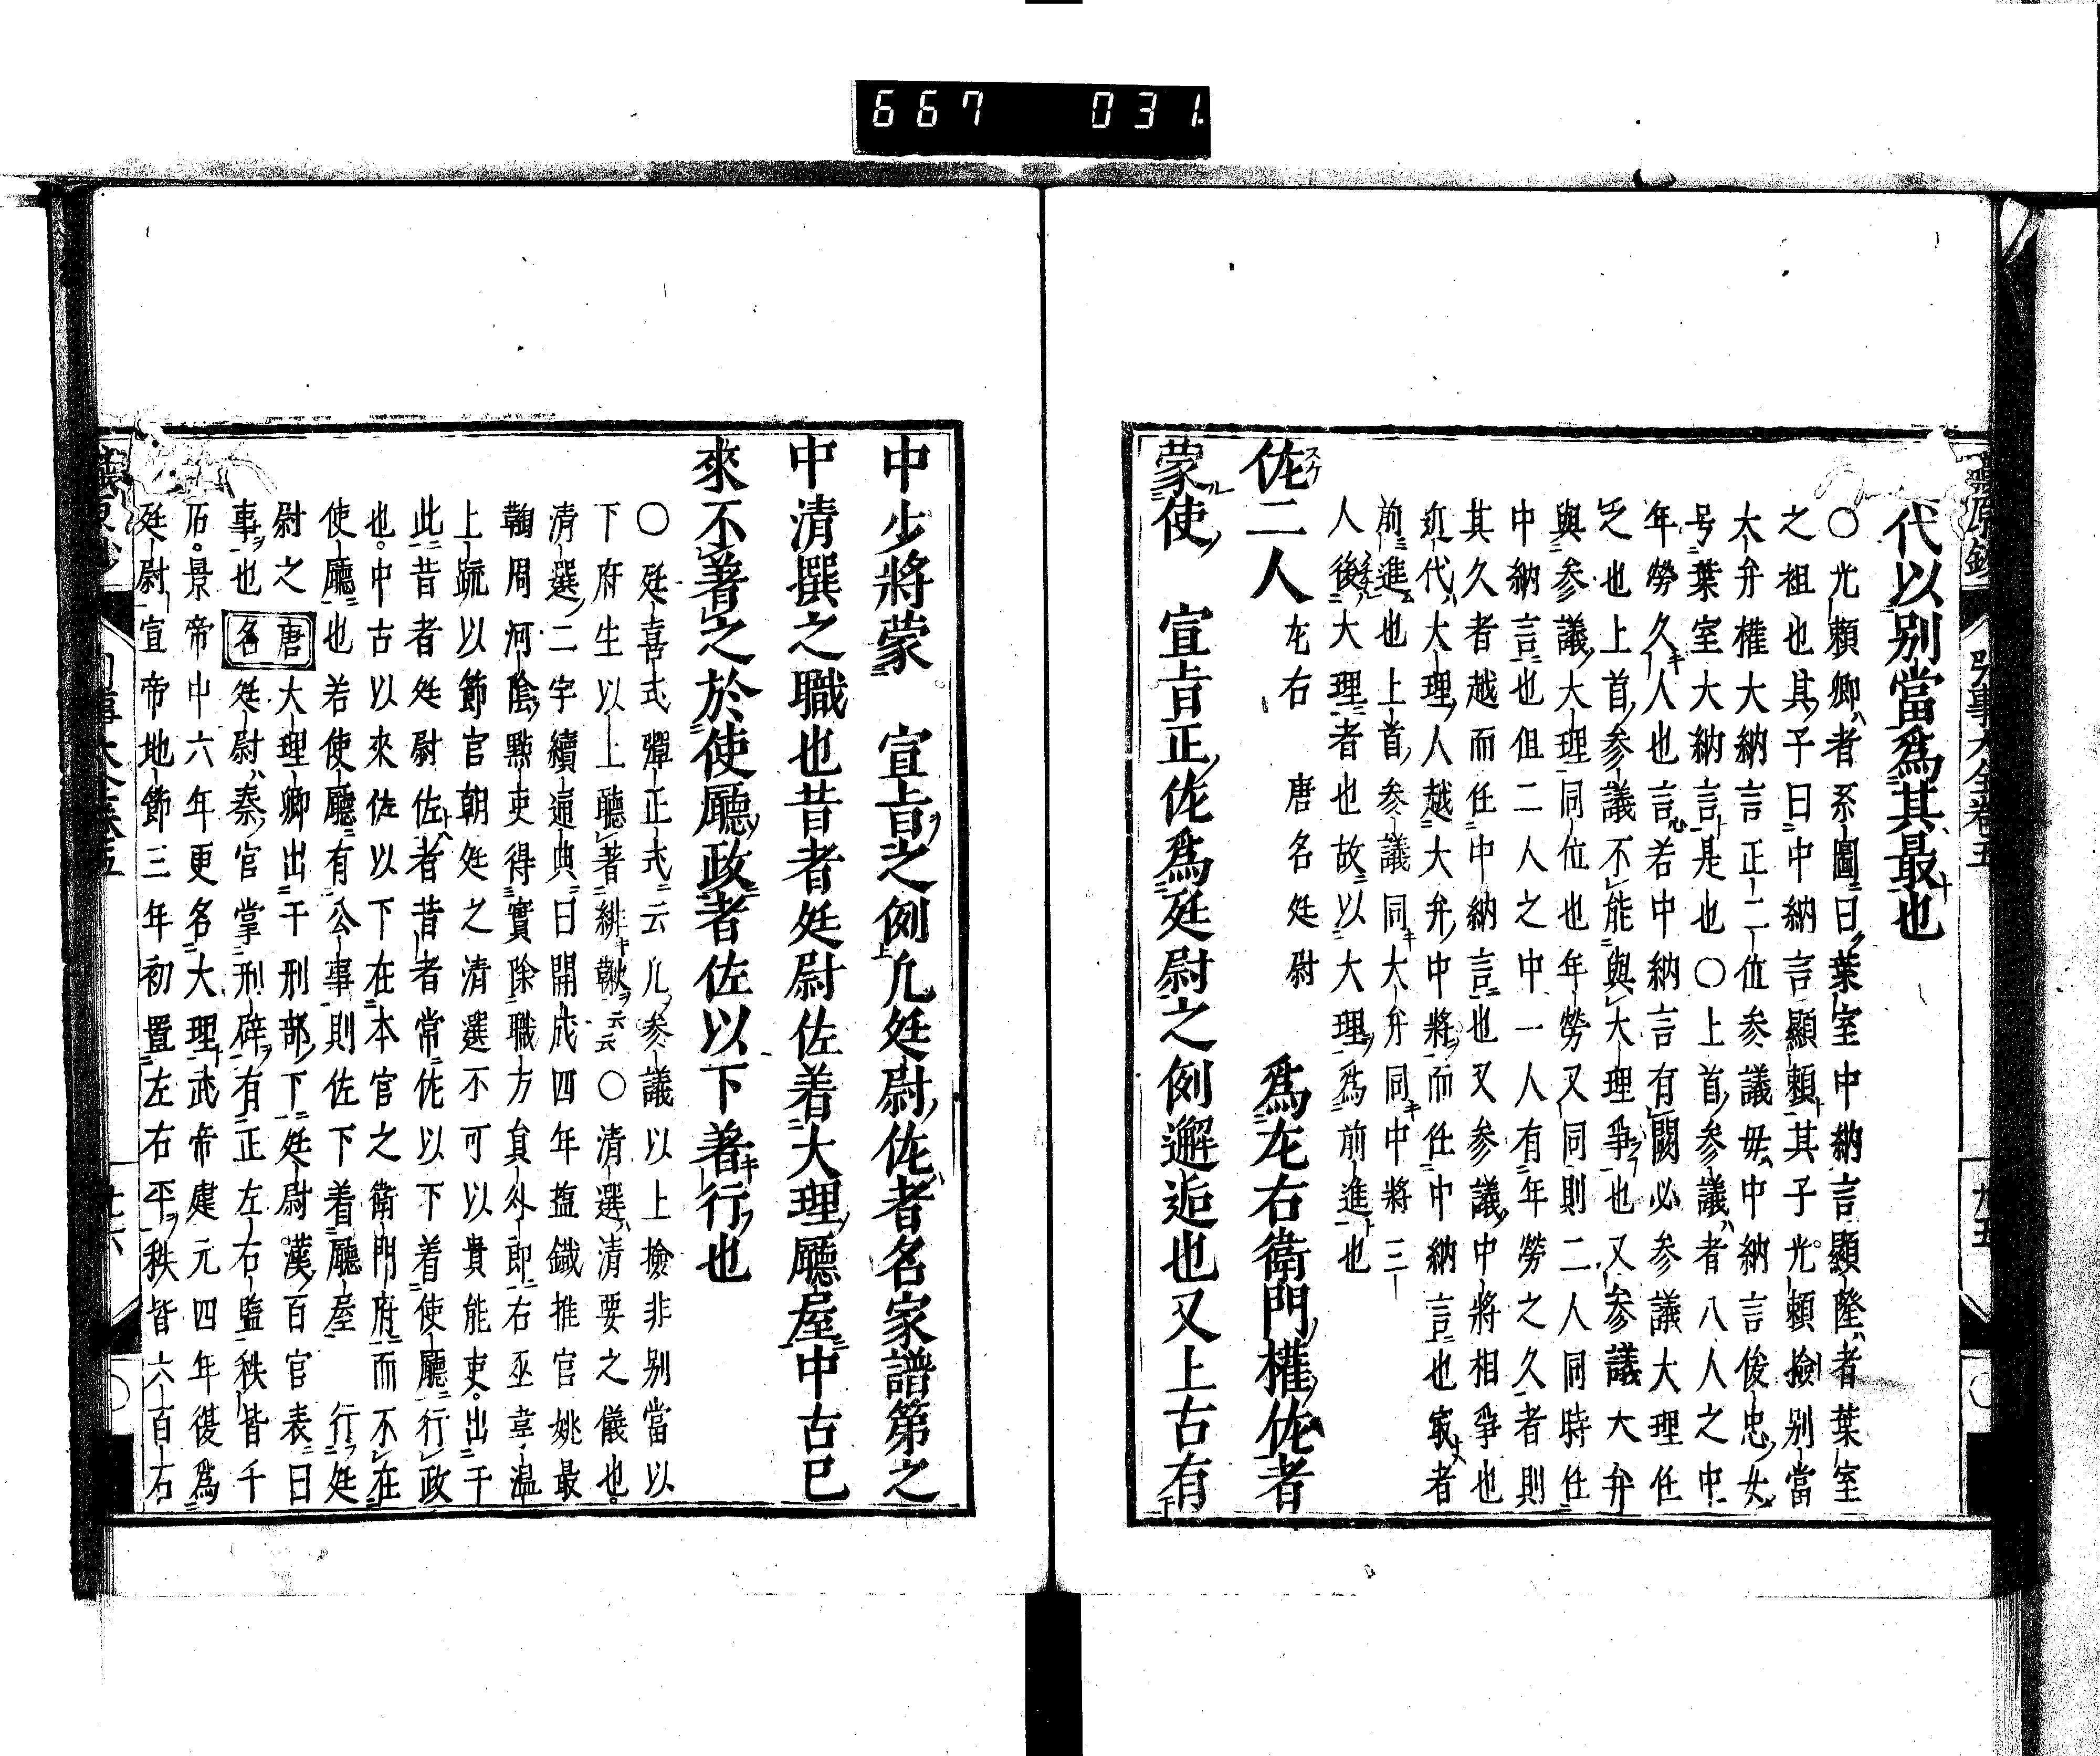 667 031
代以別當爲其最也
〇光頼卿者系圖曰葉室中納言顯隆者葉室
之祖也其子曰中納言顯頼其子光頼撿別當
大弁權大納言正二位參議母中納言俊忠女
号葉室大納言是也〇上首參議者八人之中
年勞久人也言若中納言有闕必參議大理任
之也上首參議不能與大理爭也又參議大弁
與參議大理同位也年勞又同則二人同時任
中納言也但二人之中一人有年勞之久者則
其久者越而任中納言也又參議中將相爭也
近代大理人越大弁中將而任中納言也最者
前進也上首參議同大弁同中將三
人後大理者也故以大理爲前進也
佐二人 左右 唐名廷尉 爲左右衛門權佐者
蒙使 宣旨正佐爲廷尉之例邂逅也又上古有
中少將蒙 宣旨之例凡廷尉佐者名家譜第之
中清撰之職也昔者廷尉佐着大理廳屋中古已
來不著之於使廳政者佐以下著行也
〇廷喜式彈正式云凡參議以上撿非別當以
下府生以上聽著緋鞦云云〇清選清要之儀也
清選二字續通典曰開成四年塩鐵推官姚最
鞠周河陰黠吏得實除職方員外郎右丞韋温
上疏以節官朝廷之清選不可以賞能吏出于
此昔者廷尉佐者昔者常佐以下着使廳行政
也中古以來佐以下在本官之衛門府而不在
使廳也若使廳有公事則佐下着廳屋 行廷
尉之 唐 大理卿出于刑部下廷尉漢百官表曰
事也 名 廷尉秦官掌刑辟有正左右監秩皆千
石景帝中六年更名大理武帝建元四年復爲
廷尉宣帝地節三年初置左右平秩皆六百石